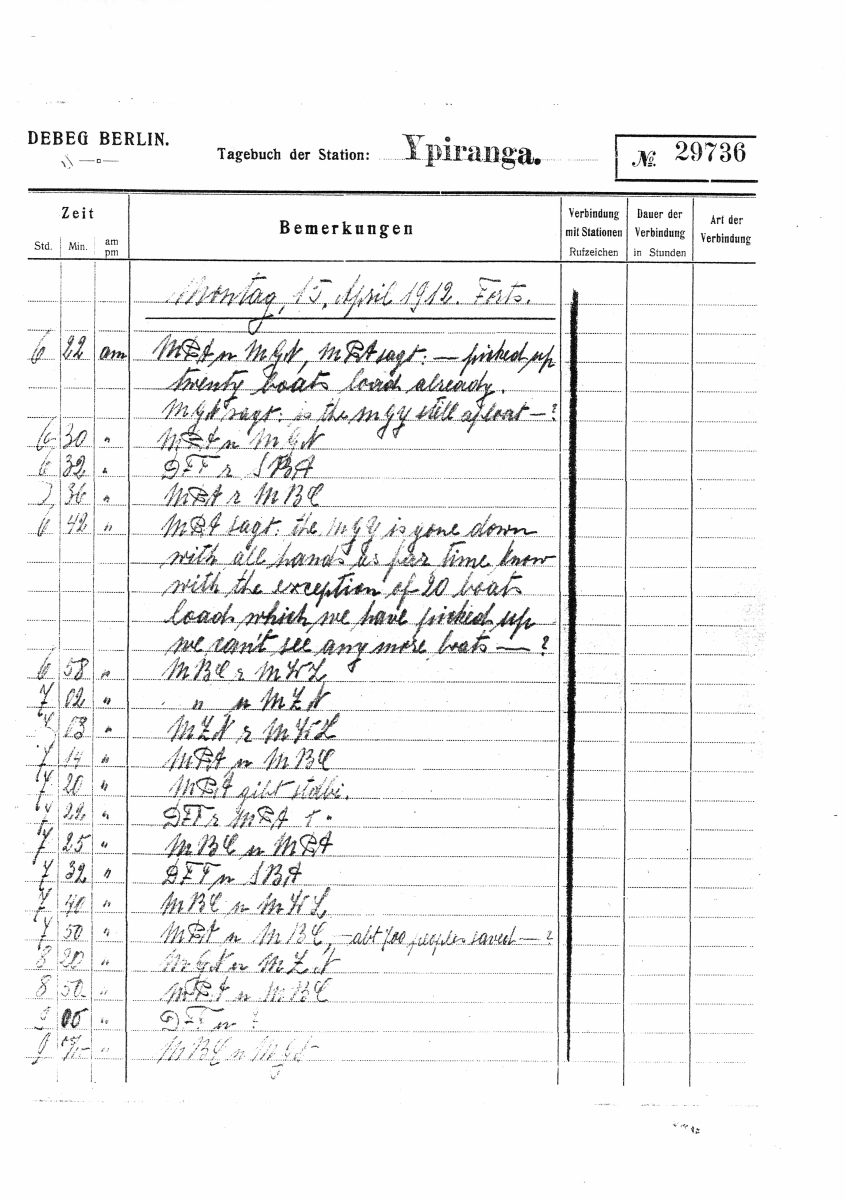 DEBEG BERLIN.
Tagebuch der Station: Ypiranga.
№. 29736
Zeit
Std. Min. am pm
Bemerkungen
Verbindung mit Stationen Rufzeichen
Dauer der Verbindung in Stunden
Art der Verbindung
Montag, 15. April 1912. Forts.
6 22 am MPA n MGN, MPA sagt: — picked up
twenty boats load already.
MGN sagt: is the MGY still afloat — ?
6 30 " MPA n MGN
6 32 " DFT r SBA
36 " MPA r MBC
6 42 " MPA sagt: the MGY is gone down
with all hands as far time know
with the exception of 20 boats
load which we have picked up
we can't see any more boats — ?
6 58 " MBC r MWL
7 02 " " n MZN
7 03 " MZN r MWL
7 14 " MPA n MBC
7 20 " MPA gibt stdbi.
7 22 " DFT r MPA
7 25 " MBC n MPA
7 32 " DFT n SBA
7 40 " MBC n MWL
7 50 " MPA n MBC, — abt 700 peoples saved — ?
8 20 " MGN n MZN
8 50 " MPA n MBC
9 05 " DFT n ?
9 " MBC n